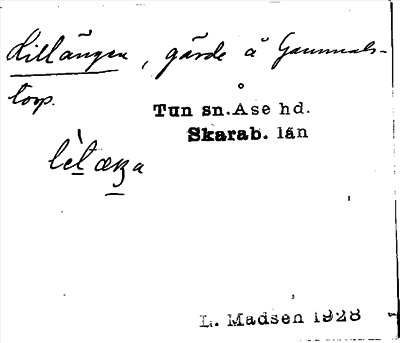 Lillängen, gärde å Gammals-
torp.
Tun sn. Åse hd.
Skarab. län
L. Madsen 1928